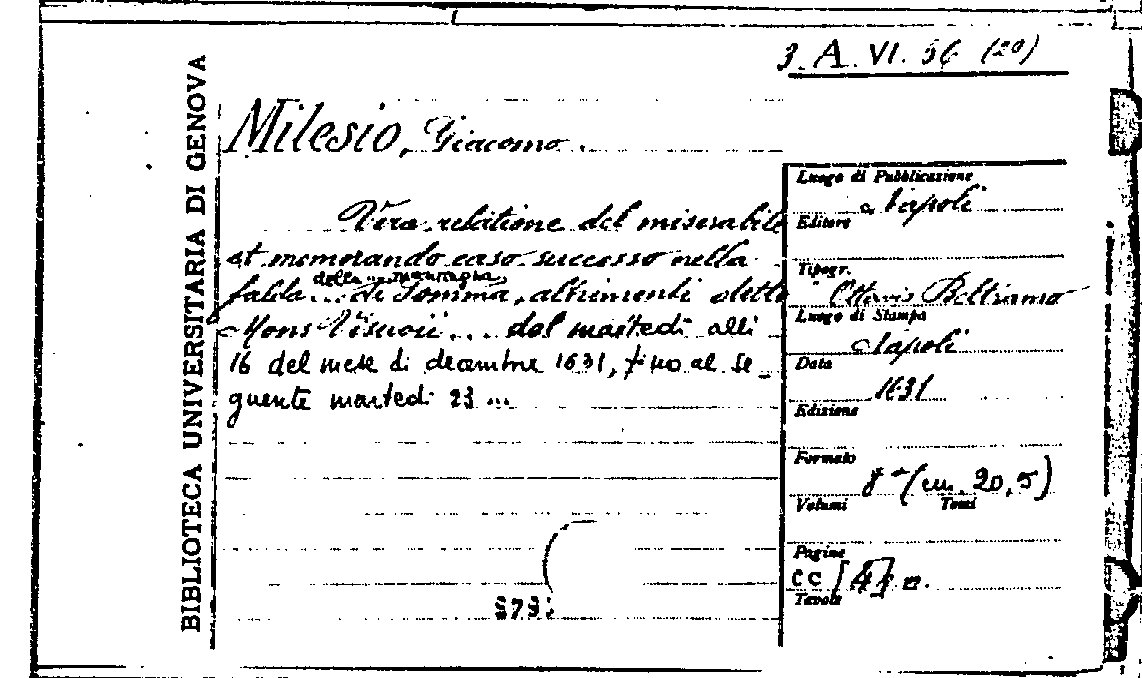 3. A. VI. 56 (20)
BIBLIOTECA UNIVERSITARIA DI GENOVA
Milesio, Giacomo.
Vera relatione del miserabile
et memorando caso successo nella
falda... della montagna di Somma, altrimenti detto
Mons Visuvii... dal martedi alli
16 del mese di decembre 1631, fino al se-
guente martedi 23 ...
Luogo di Pubblicazione
Napoli
Editore
Tipogr.
Ottavio Beltramo
Luogo di Stampa
Napoli
Data
1631
Edizione
Formato
8° (cm. 20,5)
Volumi Tomi
Pagine
cc [4] n.
Tavole